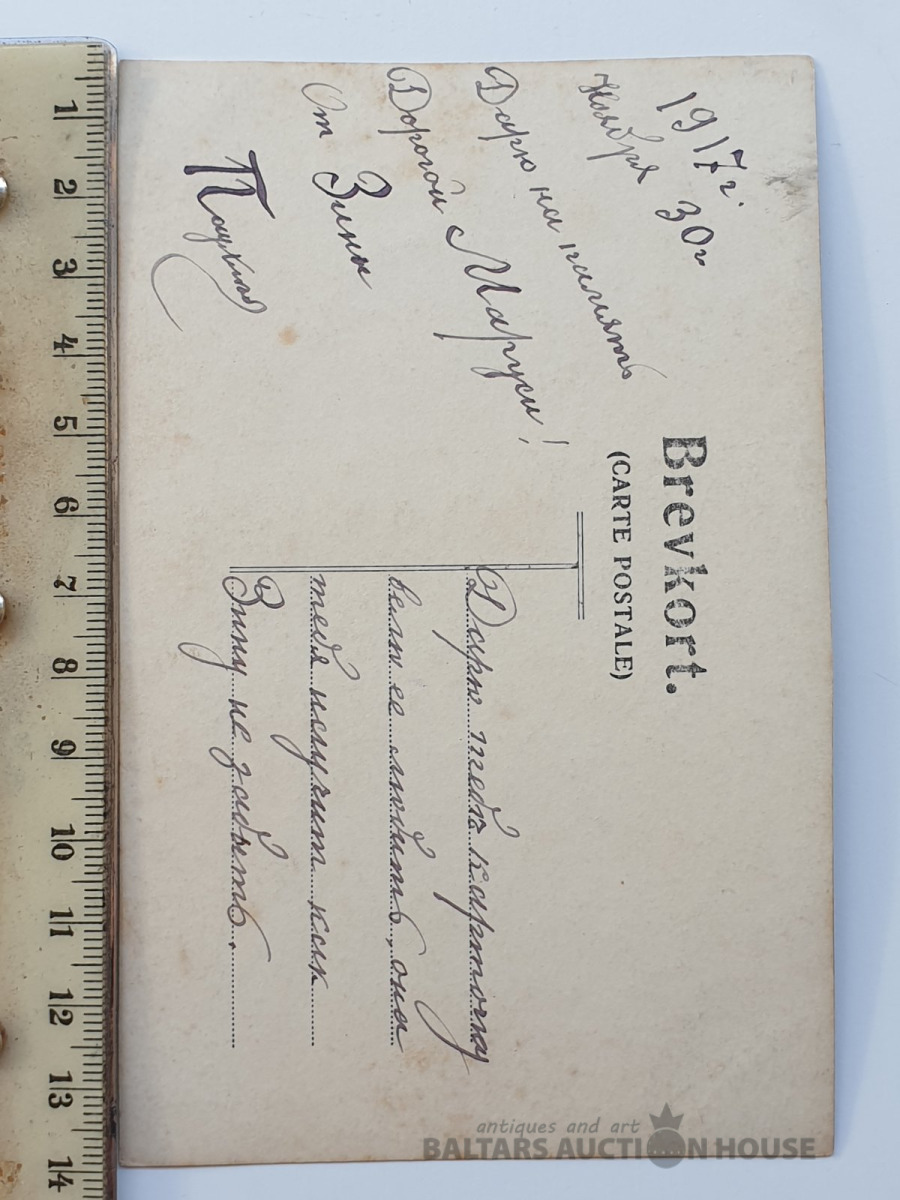 Brevkort.
(CARTE POSTALE)
1917 г.
Ноября 30 г
Дарю на память
Дорогой Маруси!
От Зины
Дарю тебе карточку
вели ее любить, она
тебя научит как
Зину не забыть.
antiques and art
BALTARS AUCTION HOUSE
1
2
3
4
5
6
7
8
9
10
11
12
13
14